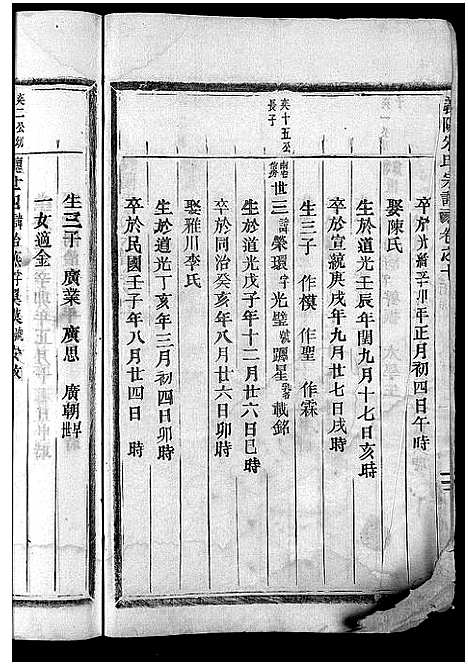 義陽朱氏宗譜 卷之十
卒於光緒辛卯年正月初四日午時
娶陳氏
生於道光壬辰年閏九月十七日亥時
卒於宣統庚戌年九月廿七日戌時
生三子 作模 作聖 作霖
奕十五公長子
世三 諱榮環 字光璧 號躔星 載銘
生於道光戊子年十二月廿六日巳時
卒於同治癸亥年八月廿六日卯時
娶雅川李氏
生於道光丁亥年三月初四日卯時
卒於民國壬子年八月廿四日 時
生三子 廣業 廣思 廣朝
一女適金
奕二公